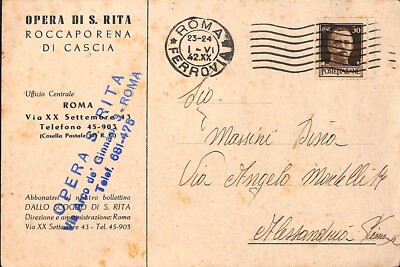 OPERA DI S. RITA
ROCCAPORENA
DI CASCIA
Ufficio Centrale
ROMA
Via XX Settembre 43
Telefono 45-903
(Casella Postale
OPERA S. RITA
Via Arco de' Ginnasi
ROMA
Telef. 681-475
Abbonatevi al nostro bollettino
DALLO SCOGLIO DI S. RITA
Direzione e amministrazione: Roma
Via XX Settembre 43 - Tel. 45-903
ROMA
23-24
1-VI
42.XX
FERROVIA
30
POSTE ITALIANE
Massini
Via Angelo
Alessandria